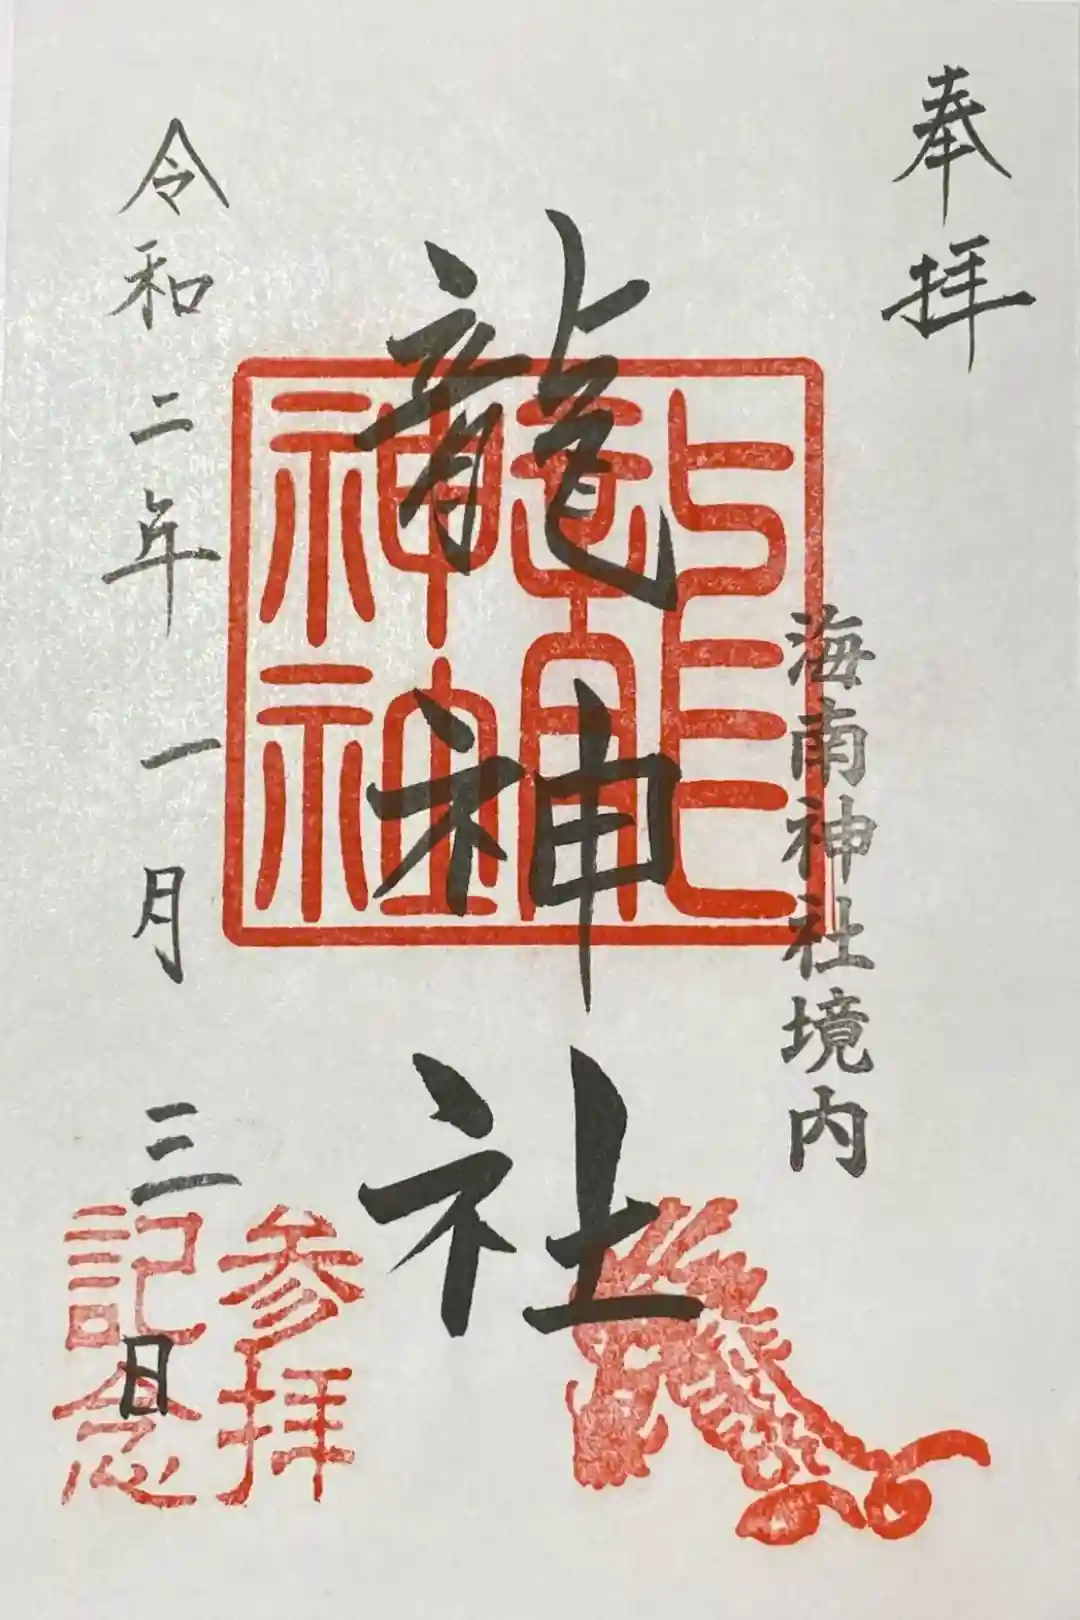 奉拝
海南神社境内
龍神社
龍神
神社
令和二年一月三日
参拝
記念